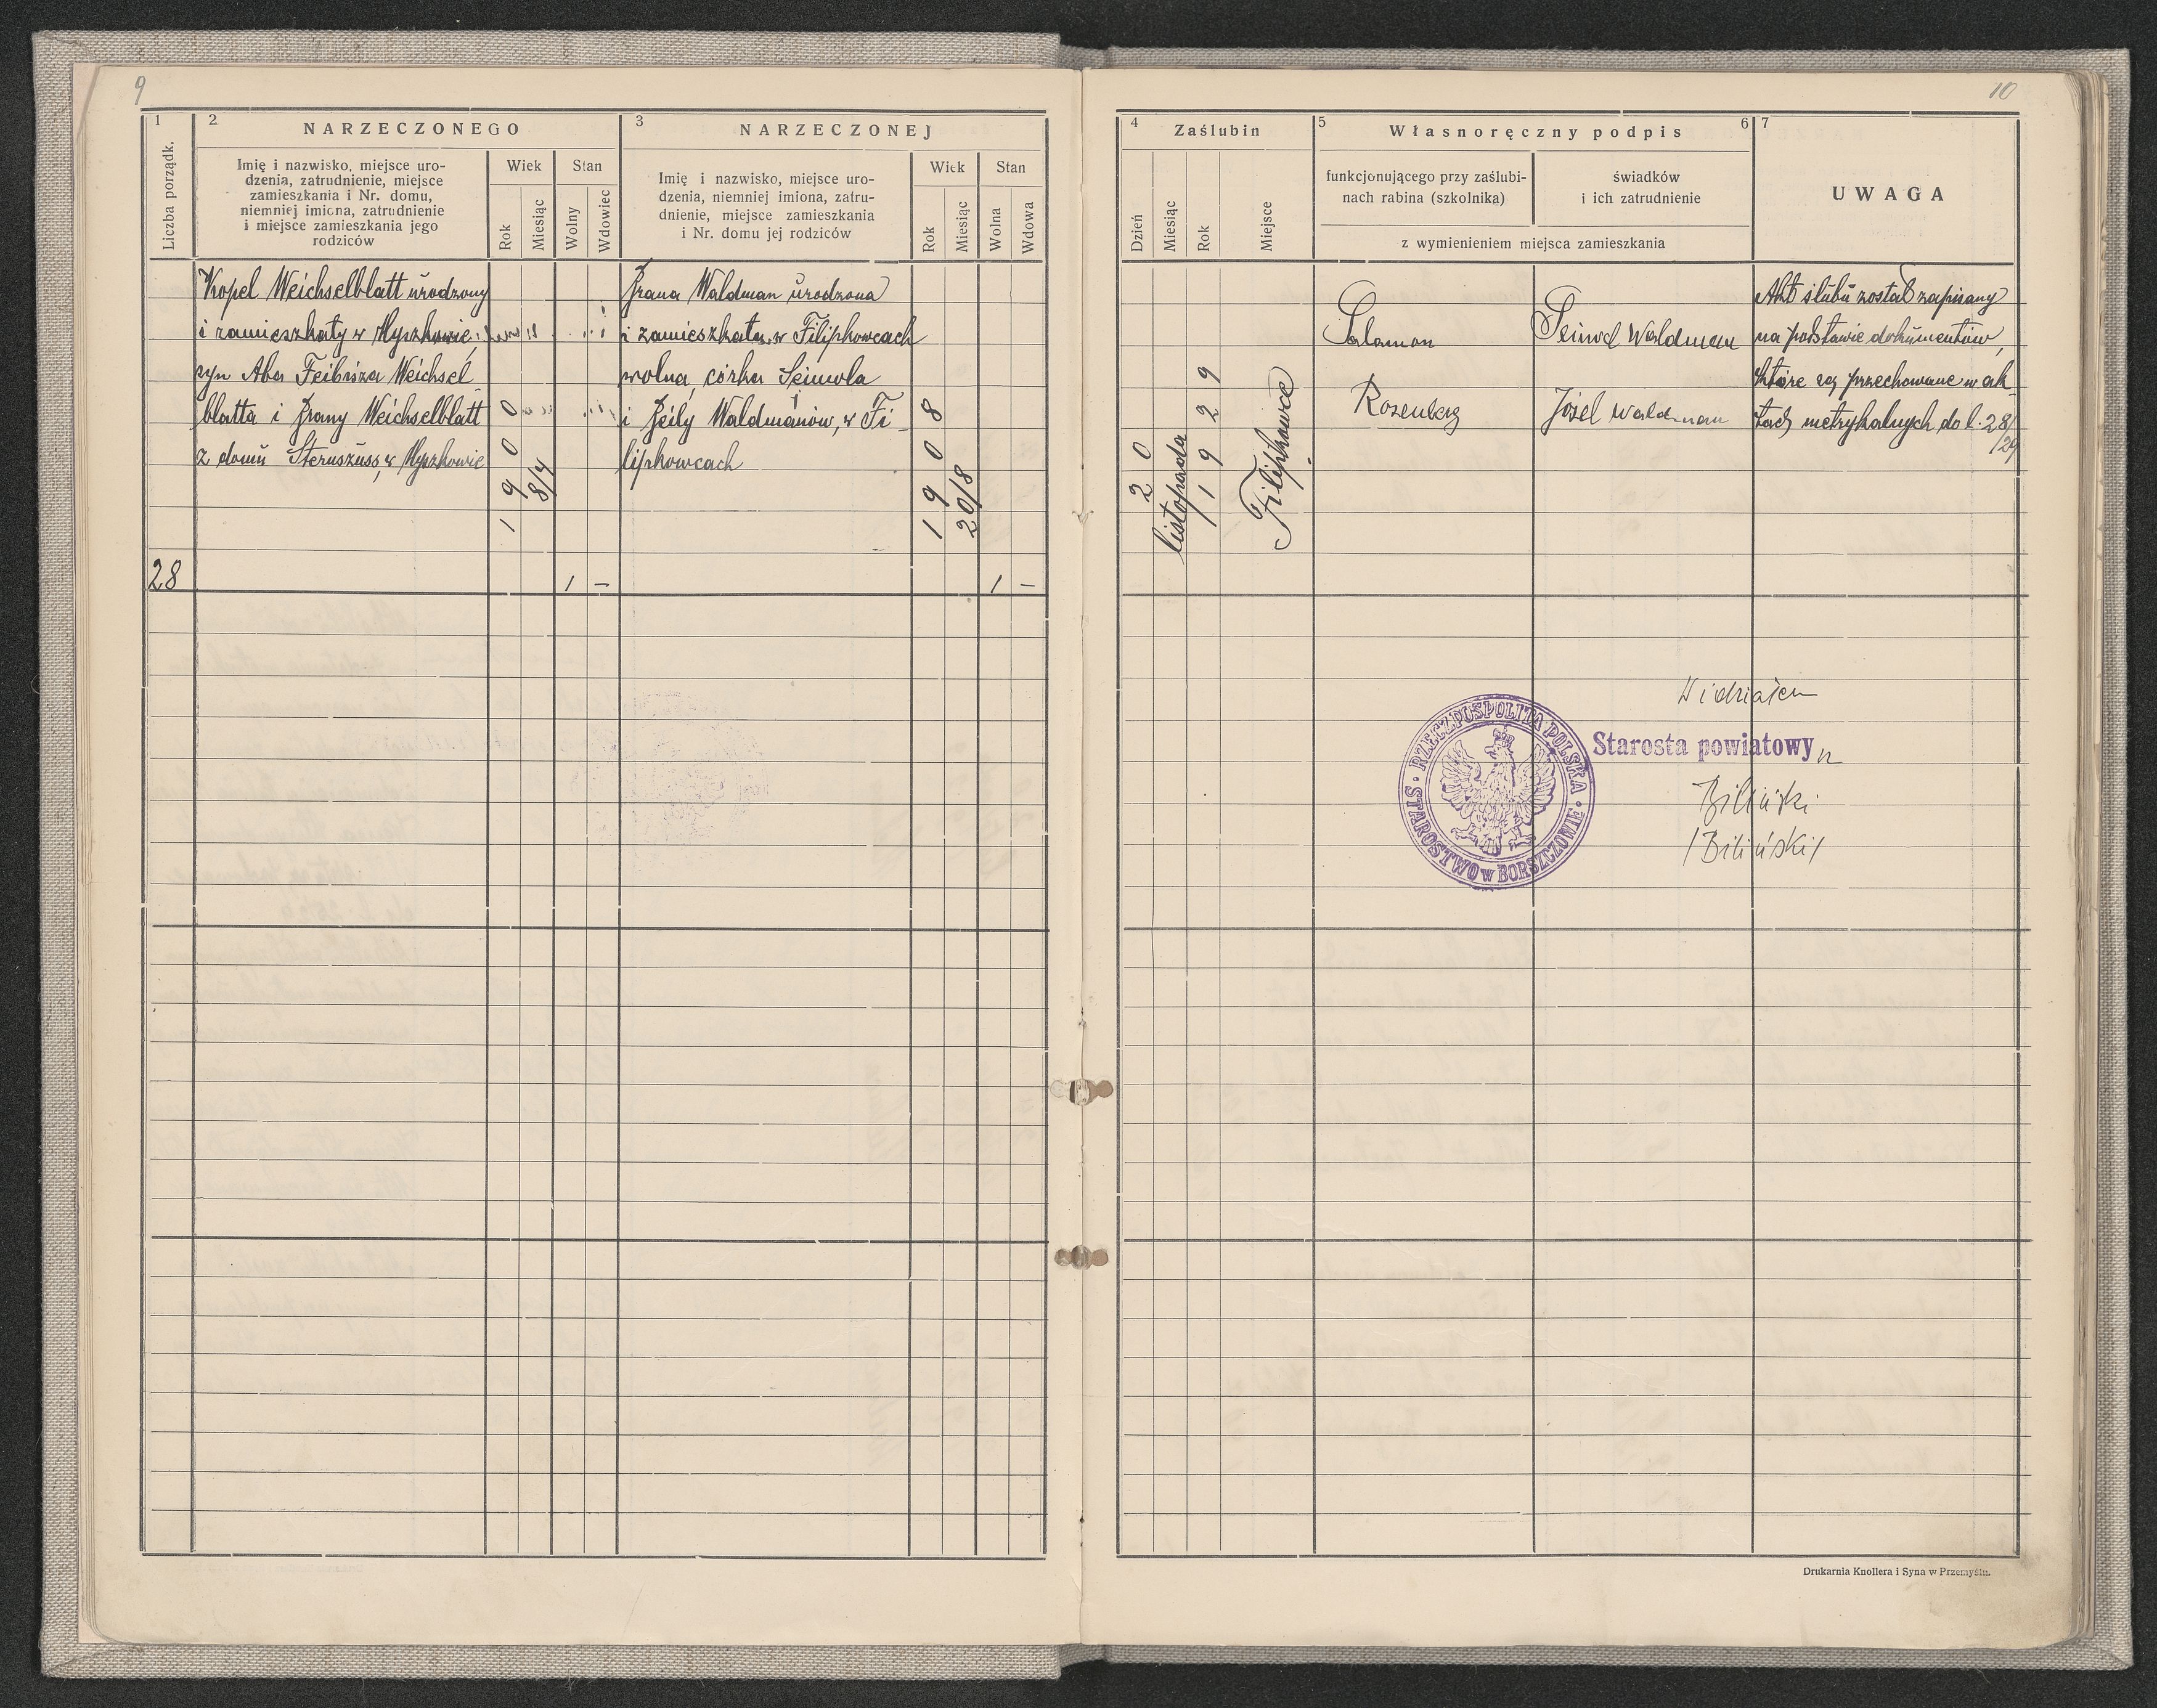 9
1
Liczba porządk.
2
NARZECZONEGO
Imię i nazwisko, miejsce uro-
dzenia, zatrudnienie, miejsce
zamieszkania i Nr. domu,
niemniej imiona, zatrudnienie
i miejsce zamieszkania jego
rodziców
Wiek
Rok
Miesiąc
Stan
Wolny
Wdowiec
3
NARZECZONEJ
Imię i nazwisko, miejsce uro-
dzenia, niemniej imiona, zatru-
dnienie, miejsce zamieszkania
i Nr. domu jej rodziców
Wiek
Rok
Miesiąc
Stan
Wolna
Wdowa
28
Kopel Weichselblatt urodzony
i zamieszkały w Myszkowie,
syn Aba Feibisza Weichsel
blatta i Brany Weichselblatt
z domu w Myszkowie
1900
8/4
1 –
Brana Waldman urodzona
i zamieszkała w Filipkowcach
wolna, córka Seinwola
i Beily Waldmanów, w Fi-
lipkowcach
1908
20/8
1 –
10
4
Zaślubin
Dzień
Miesiąc
Rok
Miejsce
5
Własnoręczny podpis
6
funkcjonującego przy zaślubi-
nach rabina (szkolnika)
świadków
i ich zatrudnienie
z wymienieniem miejsca zamieszkania
7
UWAGA
20
listopada
1929
Filipkowce
Salamon
Rozenberg
Seinwel Waldman
Josel Waldman
Akt ślubu został zapisany
na podstawie dokumentów,
które są przechowane w ak
tach metrykalnych do l. 28/
/29
Widziałem
Starosta powiatowy
Biliński
/Biliński/
RZECZPOSPOLITA POLSKA
STAROSTWO w BORSZCZOWIE
Drukarnia Knollera i Syna w Przemyślu.